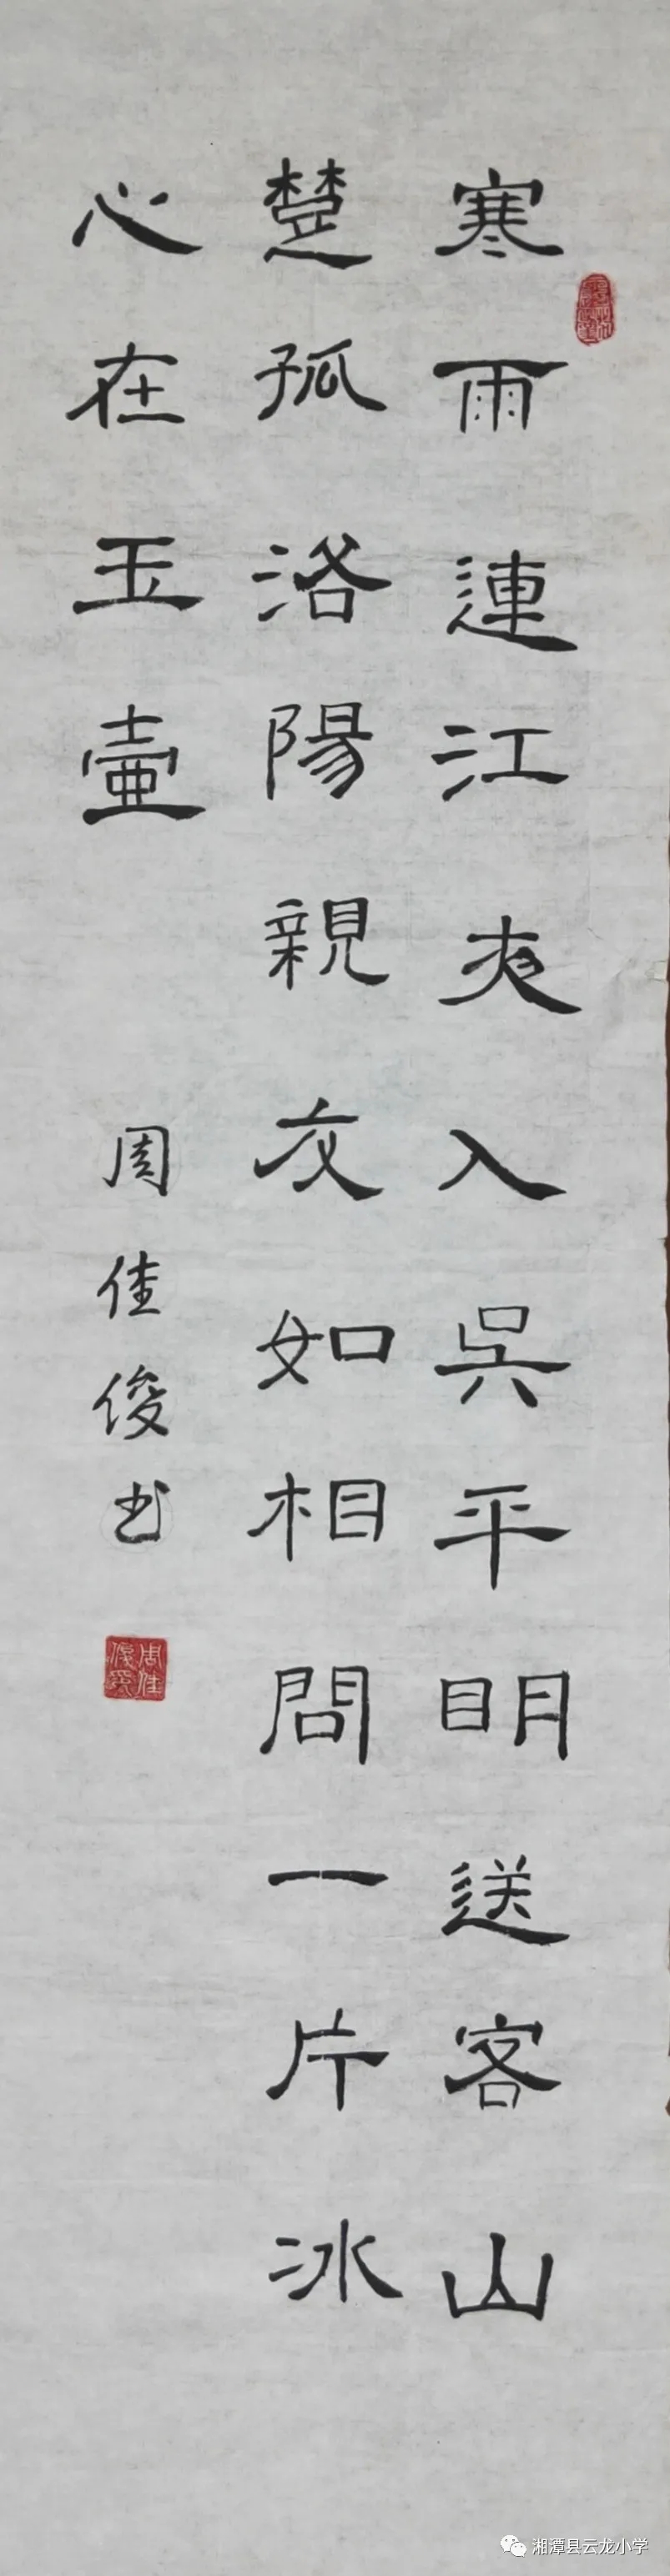 寒雨連江夜入吳平明送客山
楚孤洛陽親友如相問一片冰
心在玉壺
周佳俊书
周佳俊印
湘潭县云龙小学